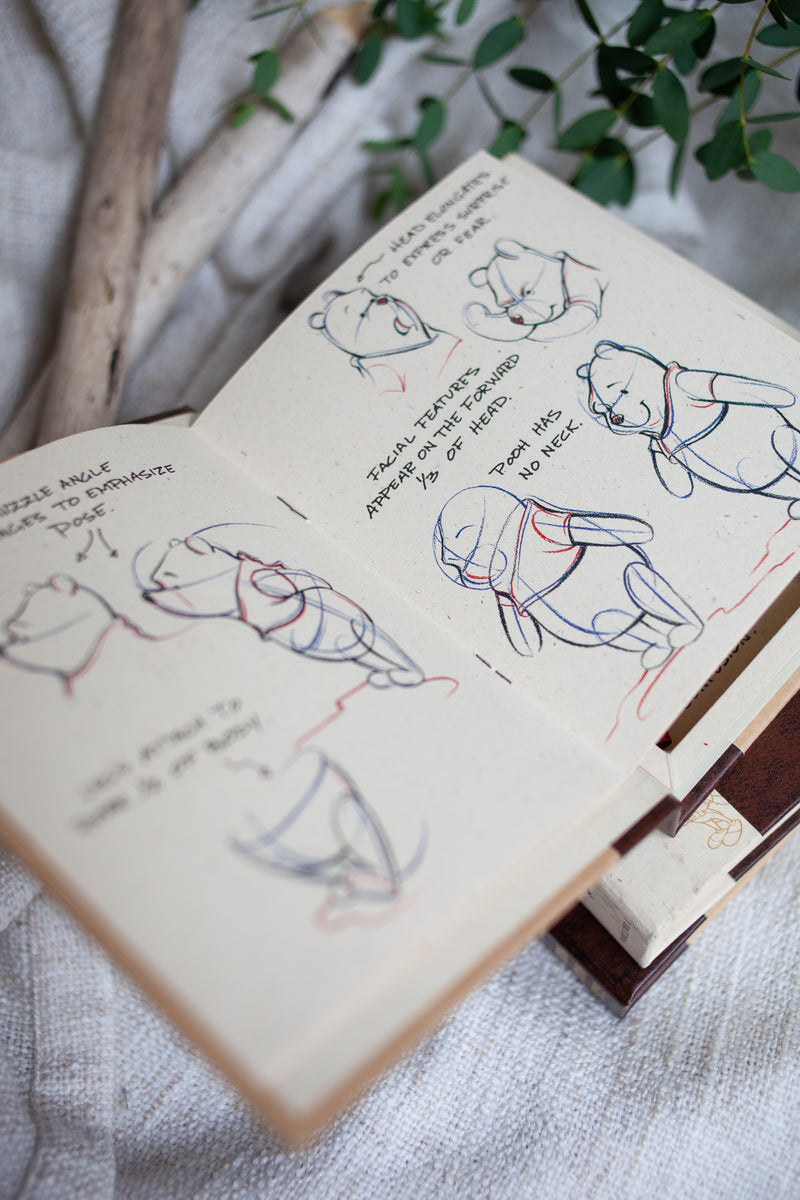 MUZZLE ANGLE
NGES TO EMPHASIZE
POSE.
LEGS ATTACH TO
LOWER 1/3 OF BODY.
HEAD ELONGATES
TO EXPRESS SURPRISE
OR FEAR.
FACIAL FEATURES
APPEAR ON THE FORWARD
1/3 OF HEAD.
POOH HAS
NO NECK.